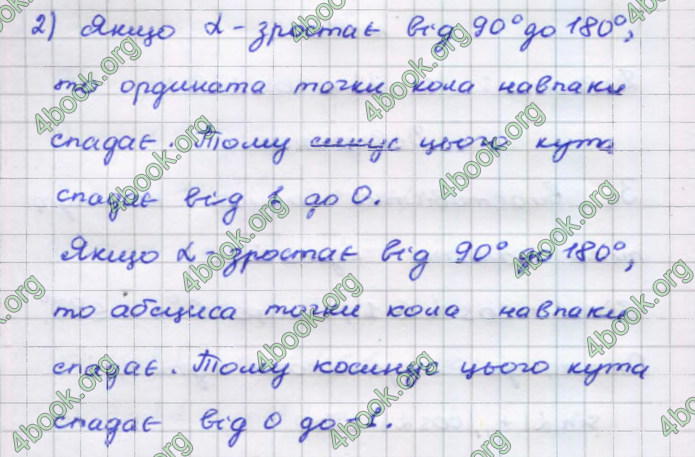 2) Якщо α - зростає від 90° до 180°,
то ордината точки кола навпаки
спадає. Тому синус цього кута
спадає від 1 до 0.
Якщо α - зростає від 90° до 180°,
то абсциса точки кола навпаки
спадає. Тому косинус цього кута
спадає від 0 до -1.
4book.org
4book.org
4book.org
4book.org
4book.org
4book.org
4book.org
4book.org
4book.org